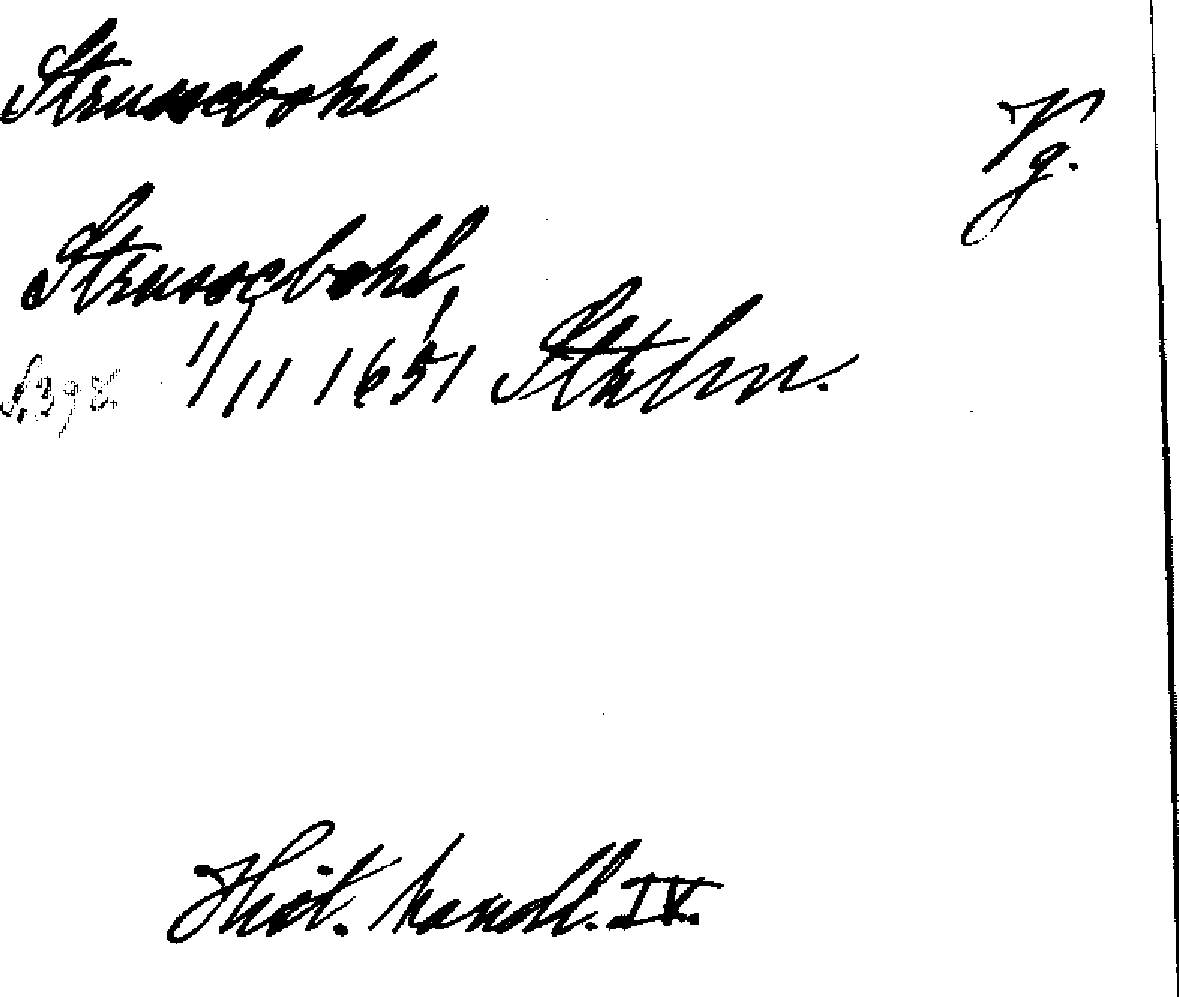 Strussebohl
Vg.
Strussebohl,
1/11 1651 Sthlm.
Hist. handl. IV.